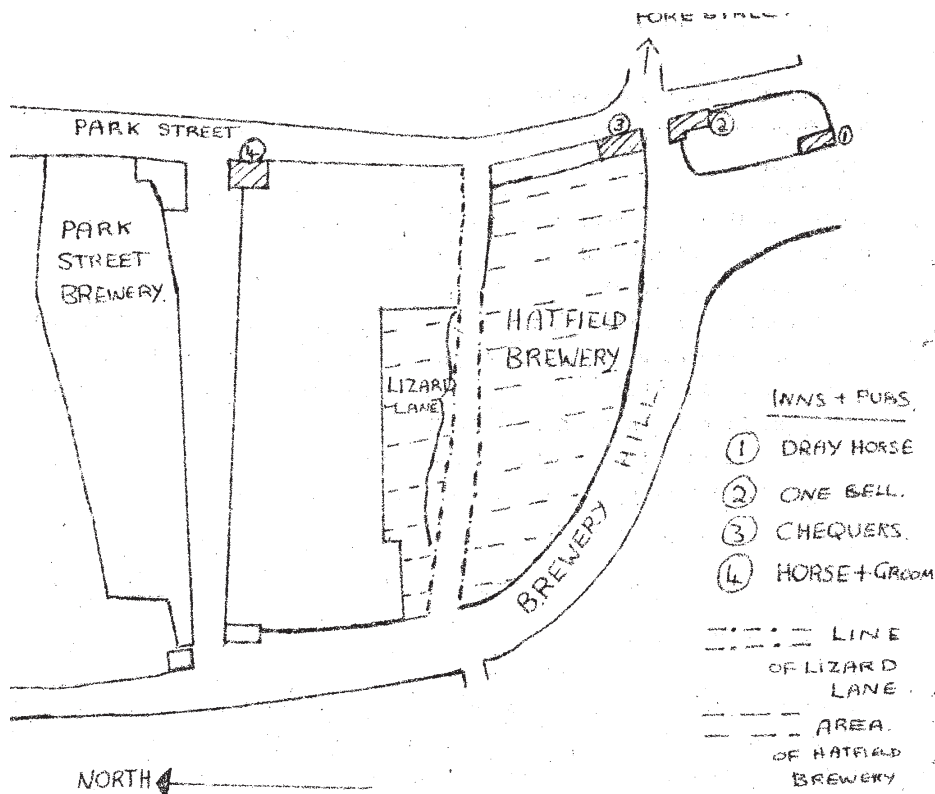 FORE STREET
PARK STREET
4
3
2
1
PARK
STREET
BREWERY.
HATFIELD
BREWERY
LIZARD
LANE
BREWERY HILL
INNS + PUBS
1 DRAY HORSE
2 ONE BELL.
3 CHEQUERS.
4 HORSE + GROOM
LINE
OF LIZARD
LANE.
AREA.
OF HATFIELD
BREWERY
NORTH